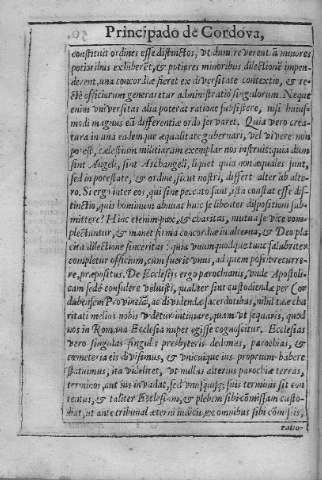 Principado de Cordova,
constituit ordines esse distinctos, ut dum reverentiã minores
potioribus exhiberẽt, & potiores minoribus dilectionẽ impen-
derent, una concordiæ fieret ex diversitate contextio, & re-
ctè officiorum generaretur administratio singulorum. Neque
enim universitas alia poterat ratione subsistere, nisi huius-
modi magnus eũ differentiæ ordo servaret. Quia vero crea
tura in una eademque æqualitate gubernari, vel vivere non
potest, cælestium militiarum exemplar nos instruit: quia dum
sint Angeli, sint Archangeli, liquet quia non æquales sunt,
sed in potestate, & ordine, sicut nostri, differt alter ab alte-
ro. Si ergo inter eos, qui sine peccato sunt, ista constat esse dis-
tinctio, quis hominum abnuat huic se libenter dispositioni sub-
mittere? Hinc etenim pax, & charitas, mutua se vice com-
plectuntur, & manet firma concordiæ in alterna, & Deo pla
cita dilectione sinceritas: quia unumquodque tunc salubriter
completur officium, cum fuerit unus, ad quem possit recurre-
re, præpositus. De Ecclesijs ergo parochianis, unde Apostoli-
cam sedẽ consulere voluisti, qualiter sint custodiendæ per Cor
dubensem Provinciã, ac dividendæ sacerdotibus, nihil tuæ cha
ritati melius nobis videtur intimare, quam ut sequaris, quod
nos in Romana Ecclesia nuper egisse cognoscitur. Ecclesias
vero singulas singulis presbyteris dedimus, parochias, &
cœmeteria eis divisimus, & unicuique ius proprium habere
statuimus, ita videlicet, ut nullus alterius parochiæ terras,
terminos, aut ius invadat, sed unusquisq; suis terminis sit con
tentus, & taliter Ecclesiam, & plebem sibi cõmissam custo-
diat, ut ante tribunal æterni iudicis, ex omnibus sibi cõmissis,
ratio-